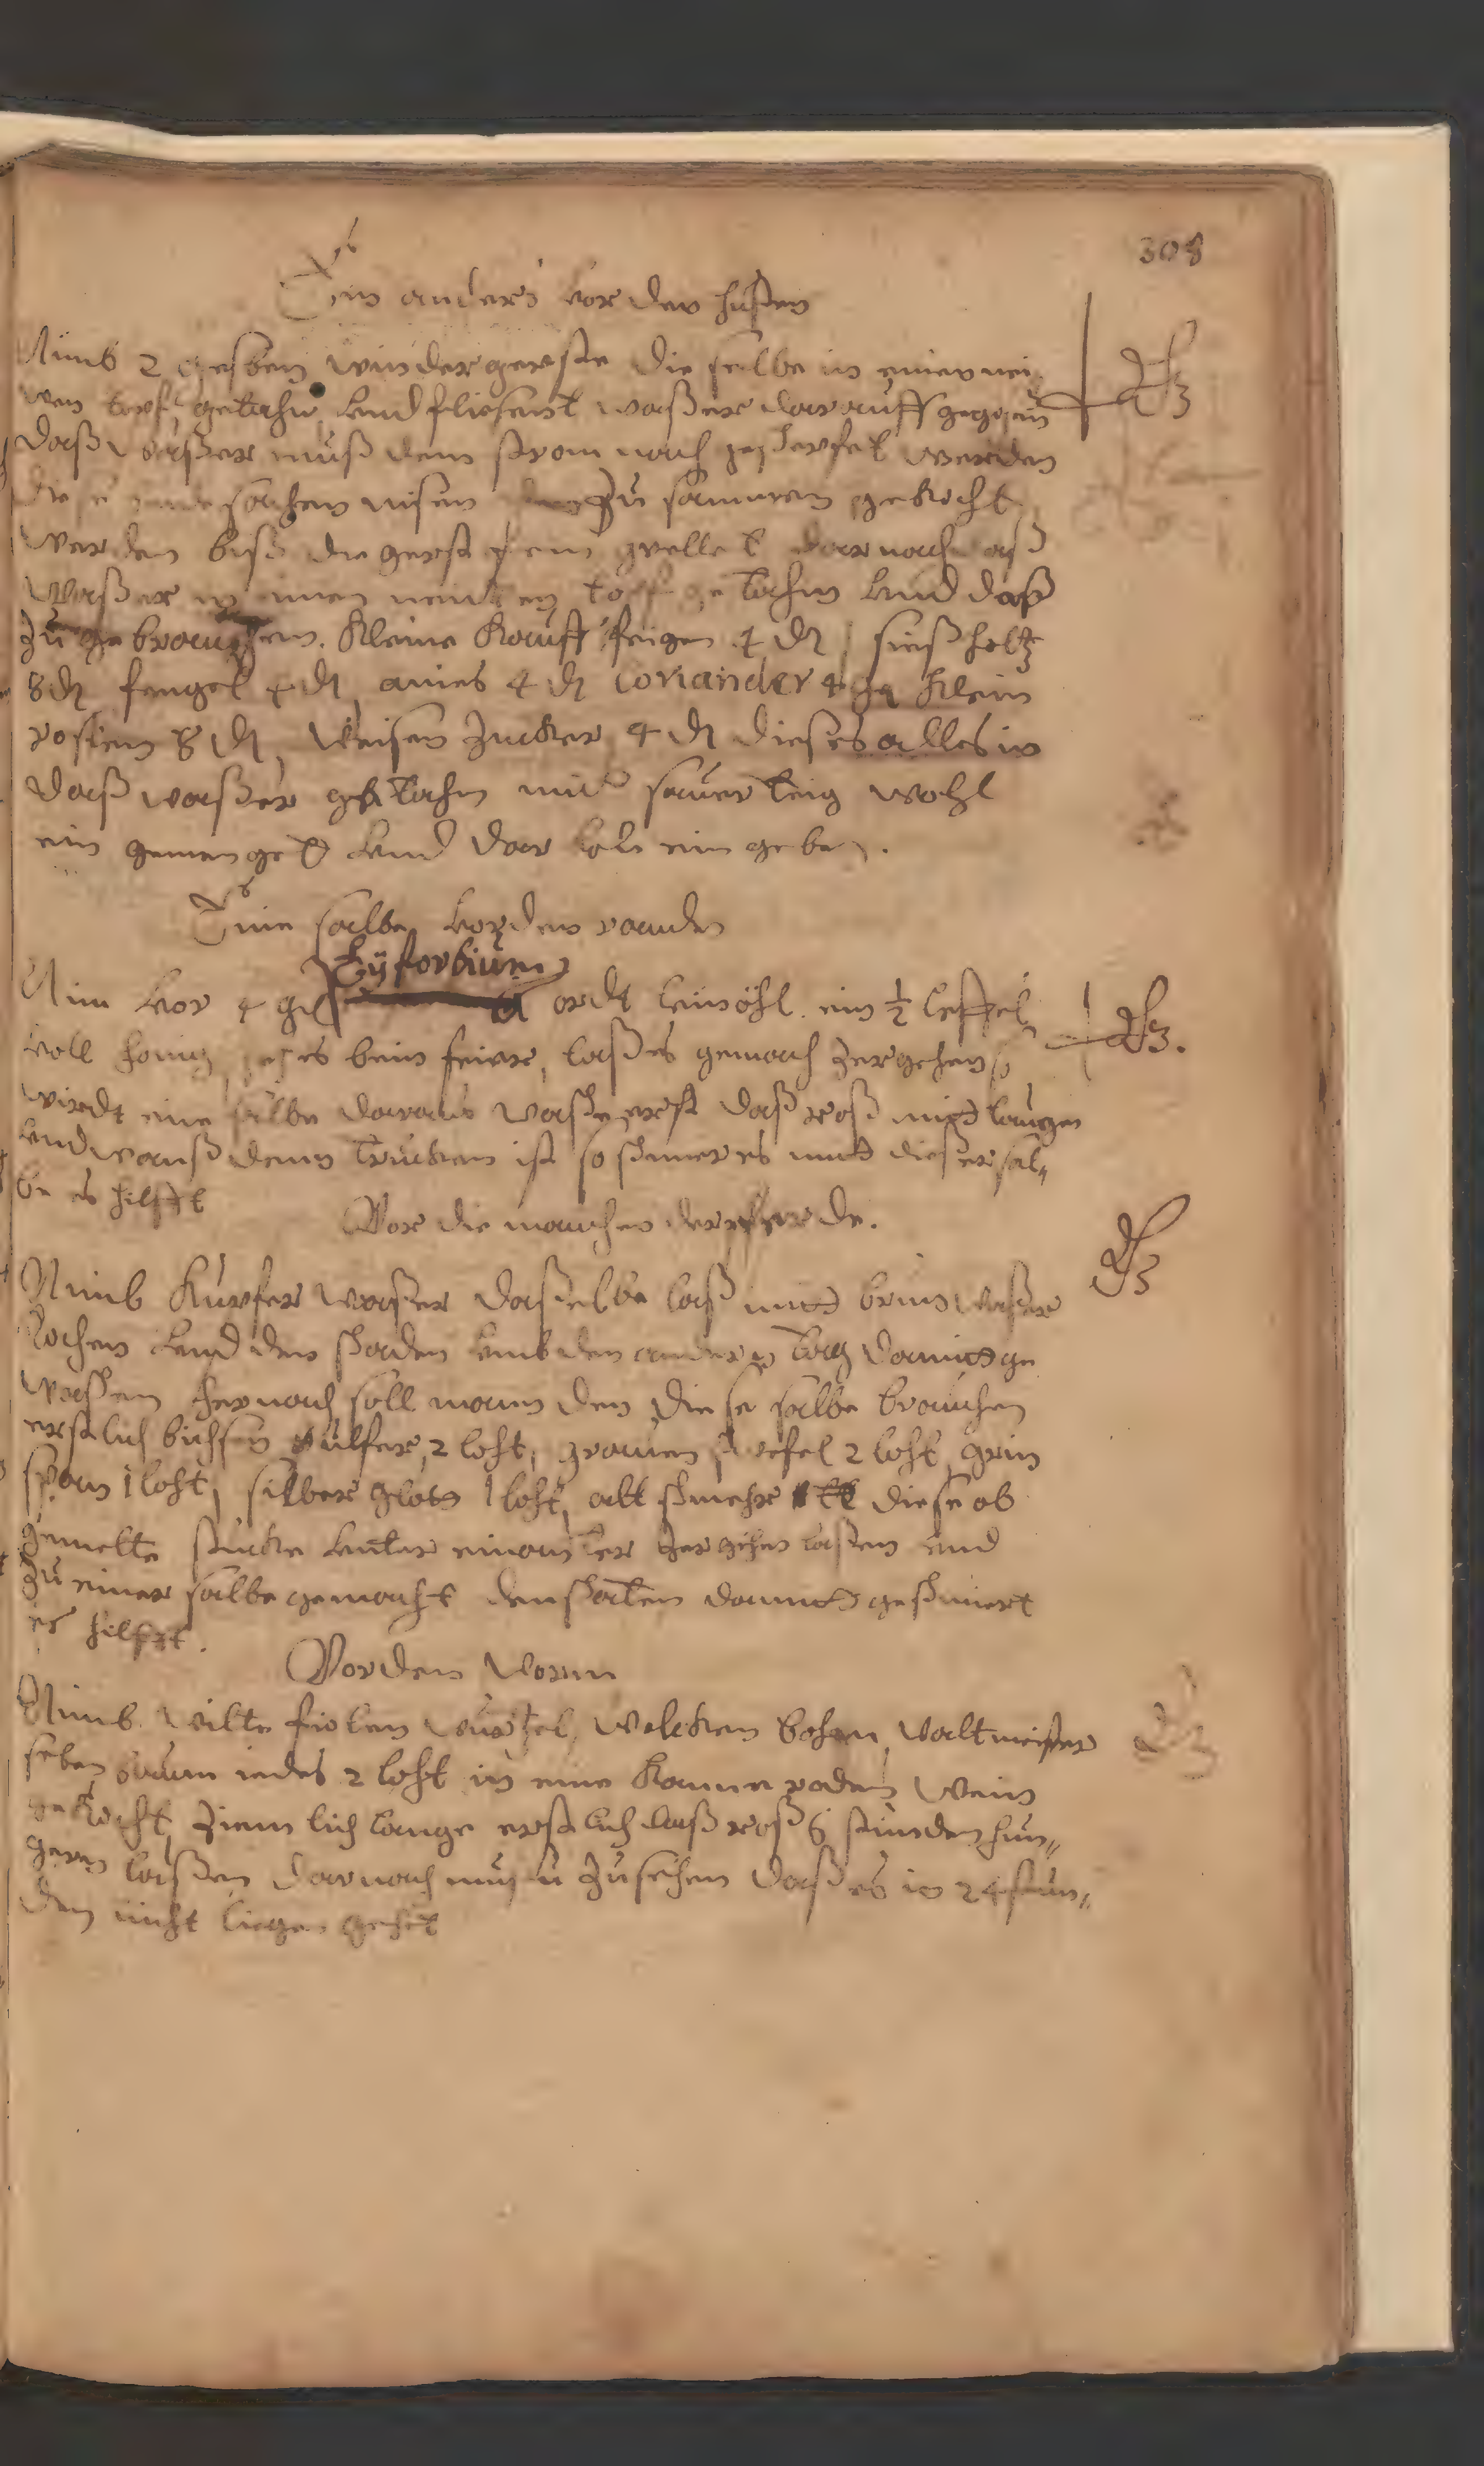 308
Ein anders vor den husten
Nimb 2 gesben wintergerste die selbe in einen nei
wen topf getahn vnd flisent waßer darauff gegosen
daß waßer muß dem strom nach gescherfet werden
diese sachen misen zu sammen gekocht
werden biß die gerst fein qvellet darnach daß
waßer in einen neuwen topff getahn vnd daß
zu gebrauchen. Kleine Kauff feigen 4 ₰ sießholtz
8 ₰ fengel 4 ₰ anies 4 ₰ Coriander 4 ₰ klein
rosien 8 ₰ Weisen Zucker 4 ₰ dieses alles in
daß waßer getahn mit sauerteig wohl
ein gemenget vnd dar von ein geben.
Eine salbe vor den rauden
Eÿforbium
Nim vor 4 gl ordt leinöhl. ein ½ leffel
voll honig es bein feiur, laß es gemach zergehen so
wirdt eine salbe daraus wasche erst daß roß mit laugen
vnd wanß denn trucken ist so schmer es mit dieser sal„
be es hilfft
Vor die mauchen der pferde.
Nimb Kupfer waßer daßelbe laß mit brun waßer
kochen vnd den schaden vmb den andern tag damit ge
waschen hernach soll mann den diese salbe brauchen
erstlich bichsen pulfer, 2 loht, grauen schwefel 2 loht grin
span 1 loht, silber glott 1 loht, alt schmehr 1 ℔ diese ob
gemelte stucke vnter einanter zergehen laßen vnd
zu einer salbe gemacht den schaten damit geschmiert
es hilfft.
Vor den Worm
Nimb wilte fiolen wurtzel, welcken bohen, waltmeister
seben baum iedes 2 loht in eine Kanne roden Wein
gekocht, ziemlich lange erstlich daß roß 6 stunden hun„
gern laßen darnach muß zusehen daß es in 24 stun„
den nicht liegen gehet